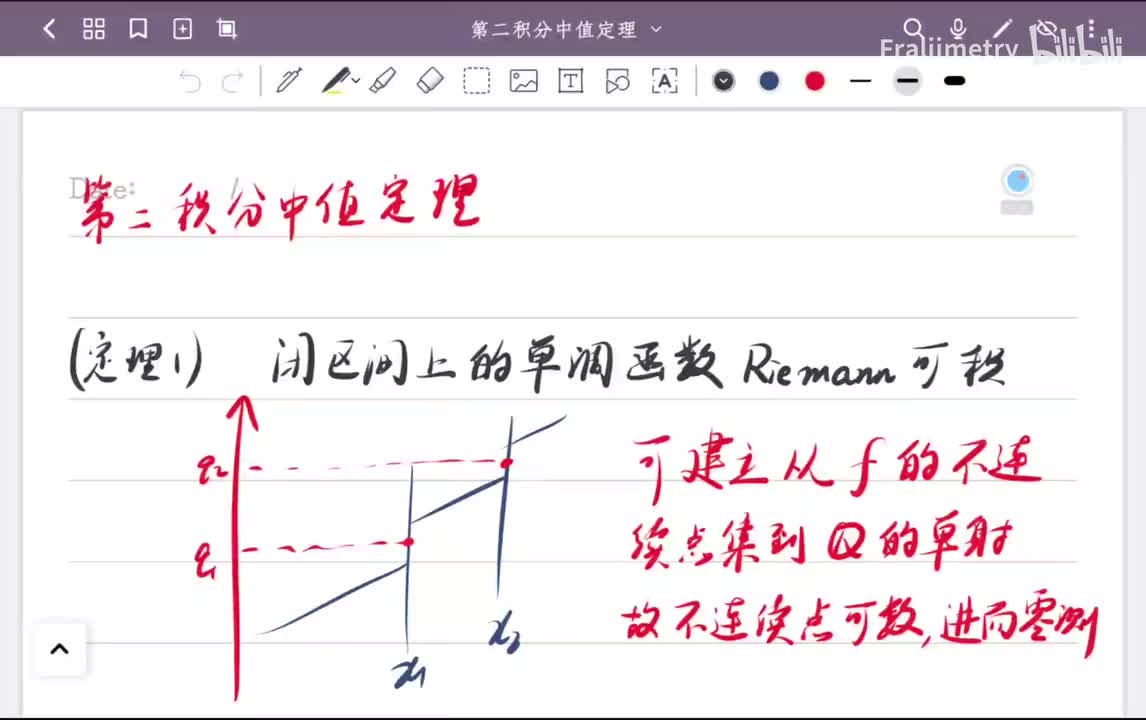 第二积分中值定理
Fraljimetry bilibili
Date:
第二积分中值定理
(定理1) 闭区间上的单调函数Riemann可积
q2
q1
x1
x2
可建立从f的不连
续点集到Q的单射
故不连续点可数,进而零测